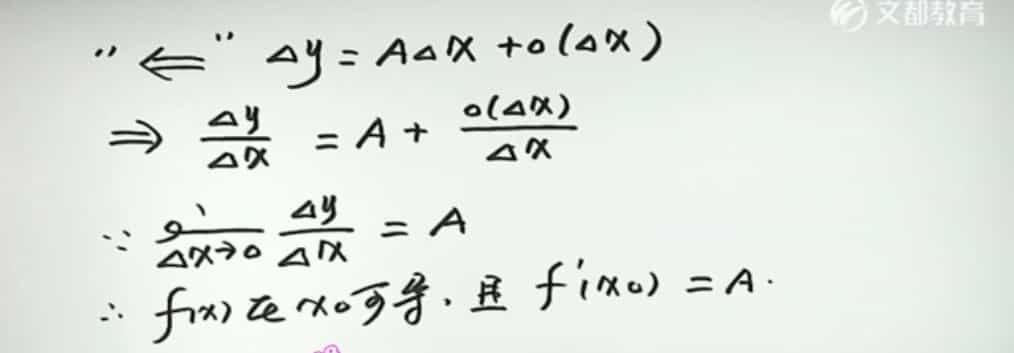 文都教育
"⇐" Δy = AΔx + o(Δx)
⇒ Δy/Δx = A + o(Δx)/Δx
∵ lim Δx→0 Δy/Δx = A
∴ f(x)在x₀可导,且 f'(x₀) = A.